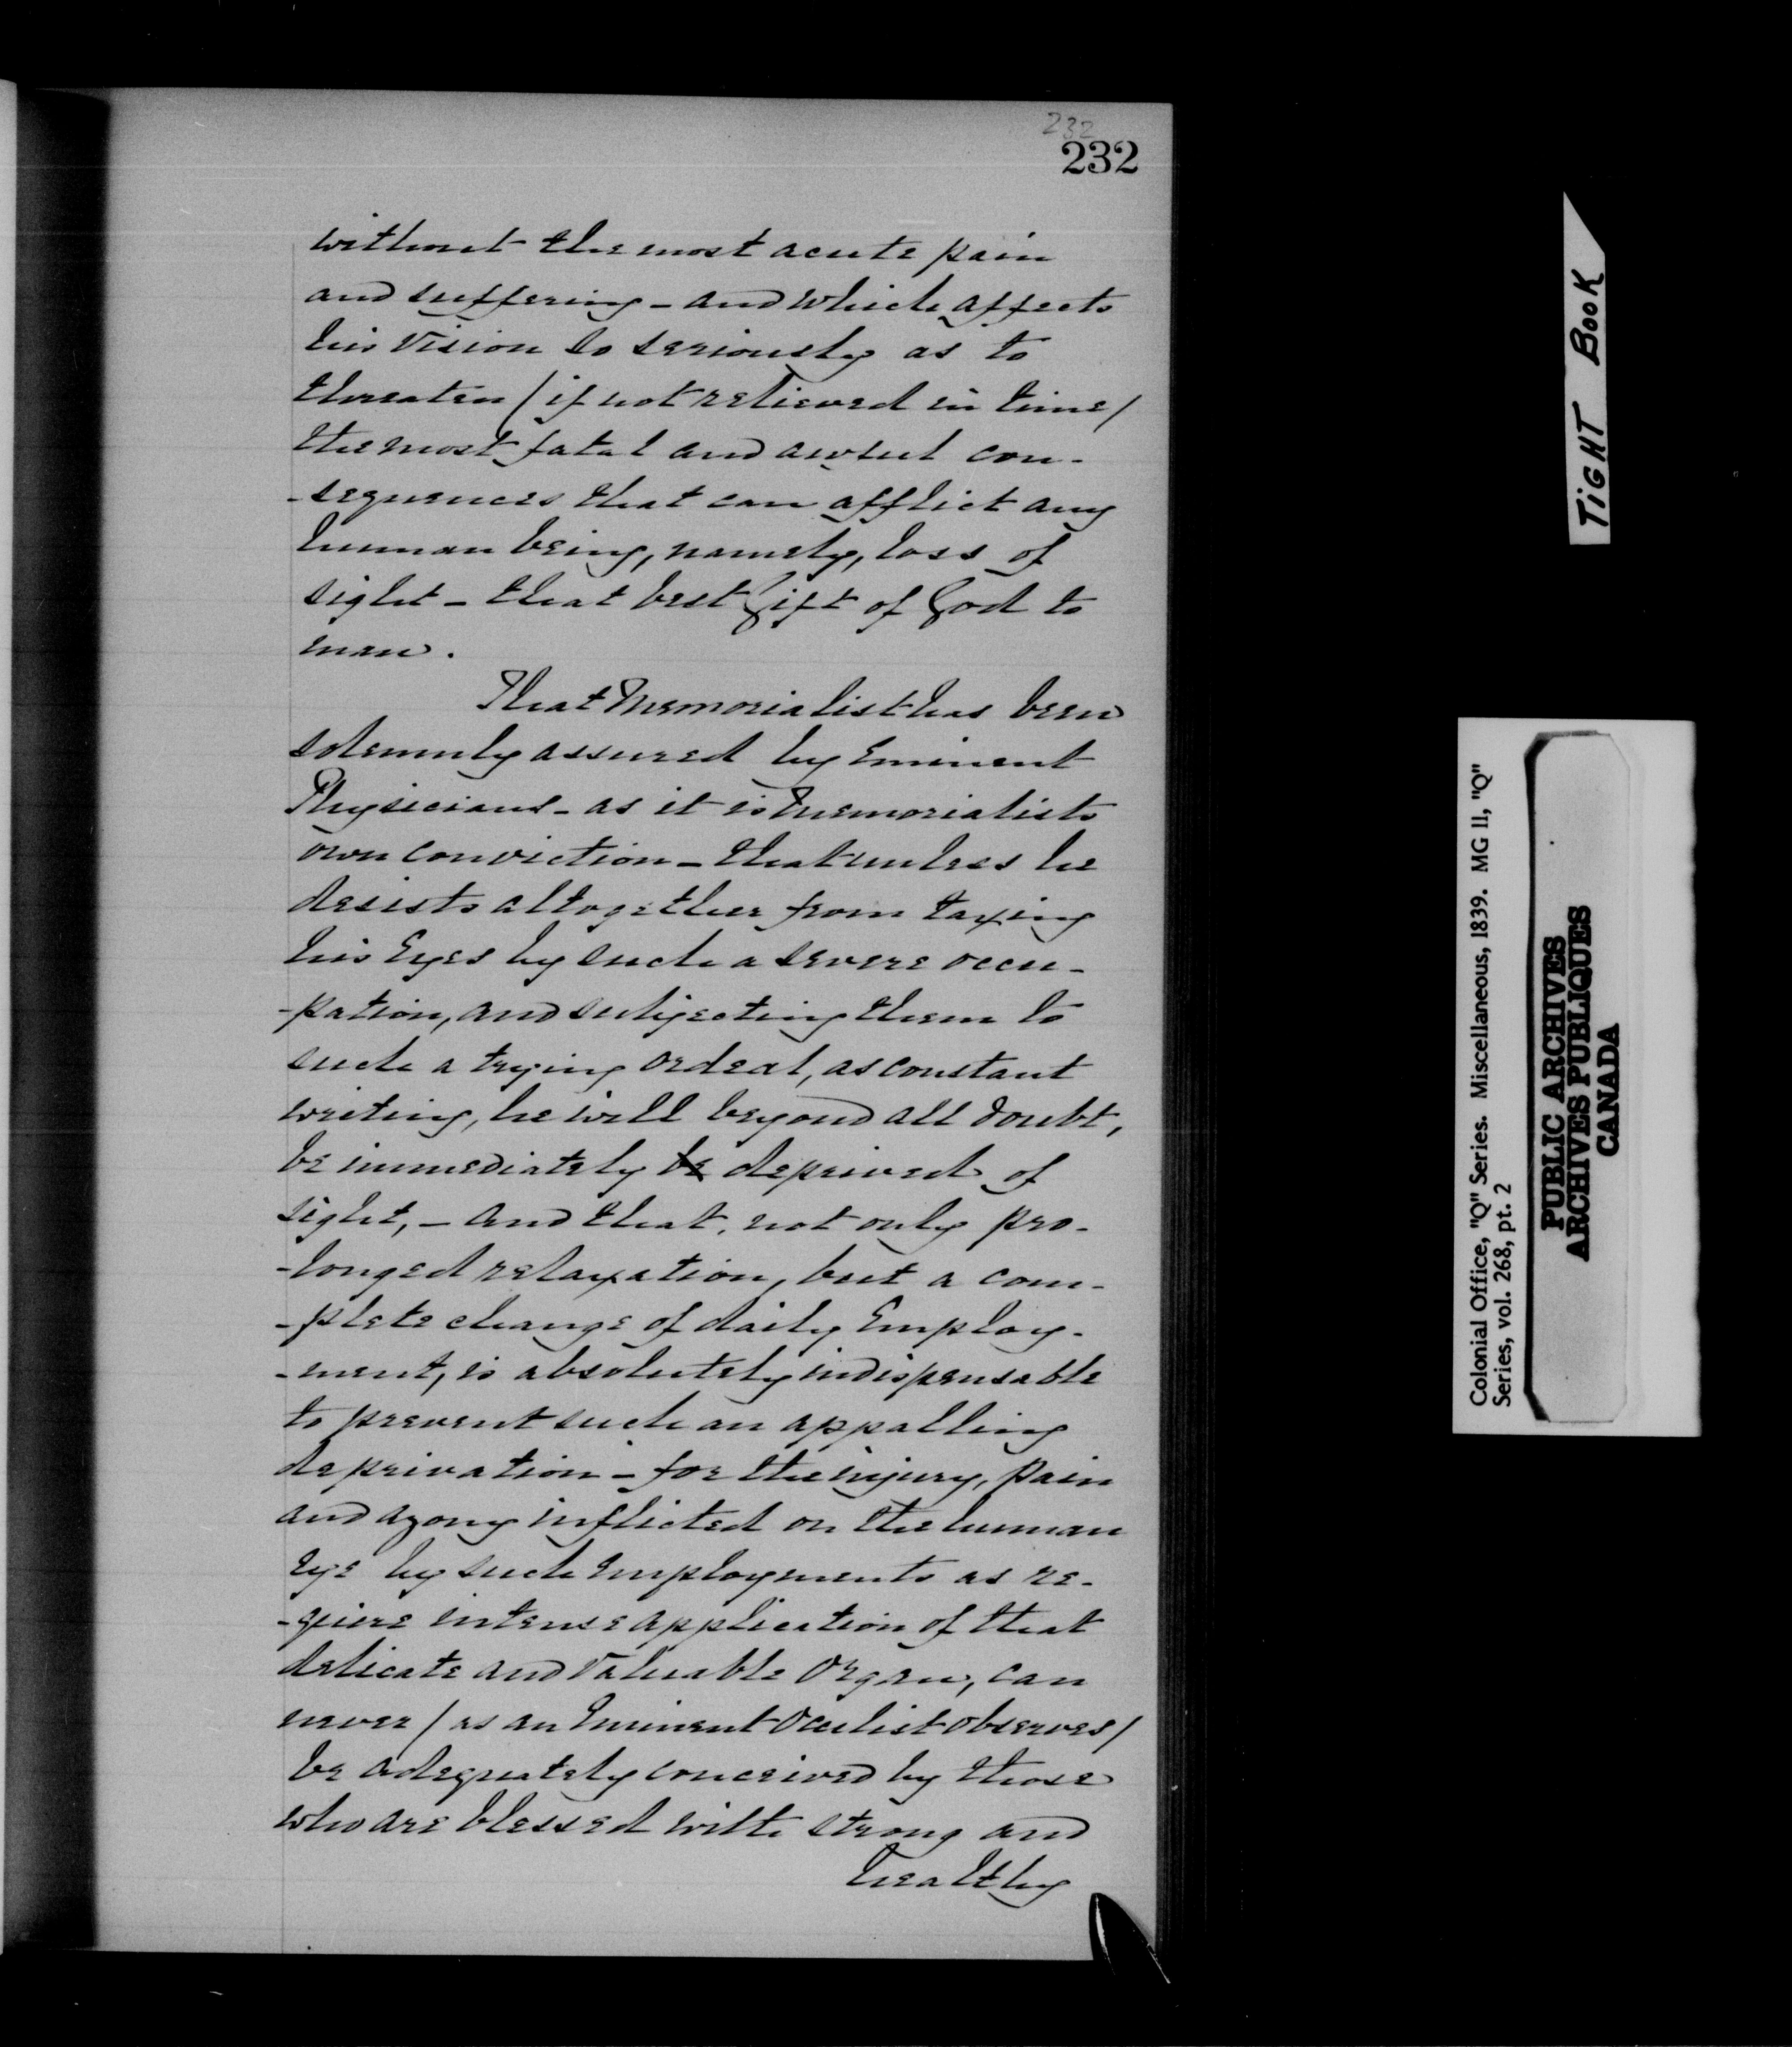 232
232
without the most acute pain
and suffering - and which affects
his vision so seriously as to
threaten (if not relieved in time/
the most fatal and awful con-
-sequences that can afflict any
human being, namely, loss of
sight - that best Gift of God to
man.
That Memorialist has been
solemnly assured by Eminent
Physicians - as it is Memorialists
own conviction - that unless he
desists altogether from taxing
his Eyes by such a severe occu-
-pation, and subjecting them to
such a trying ordeal, as constant
writing, he will beyond all doubt,
be immediately be deprived of
sight, - and that, not only pro-
-longed relaxation, but a com-
-plete change of daily Employ-
-ment, is absolutely indispensable
to prevent such an appalling
deprivation - for the injury, pain
and agony inflicted on the human
eye by such Employments as re-
-quire intense application of that
delicate and valuable organ, can
never / as an Eminent Oculist observes /
be adequately conceived by those
who are blessed with strong and
healthy
TIGHT BOOK
Colonial Office, "Q" Series. Miscellaneous, 1839. MG 11, "Q"
Series, vol. 268, pt. 2
PUBLIC ARCHIVES
ARCHIVES PUBLIQUES
CANADA